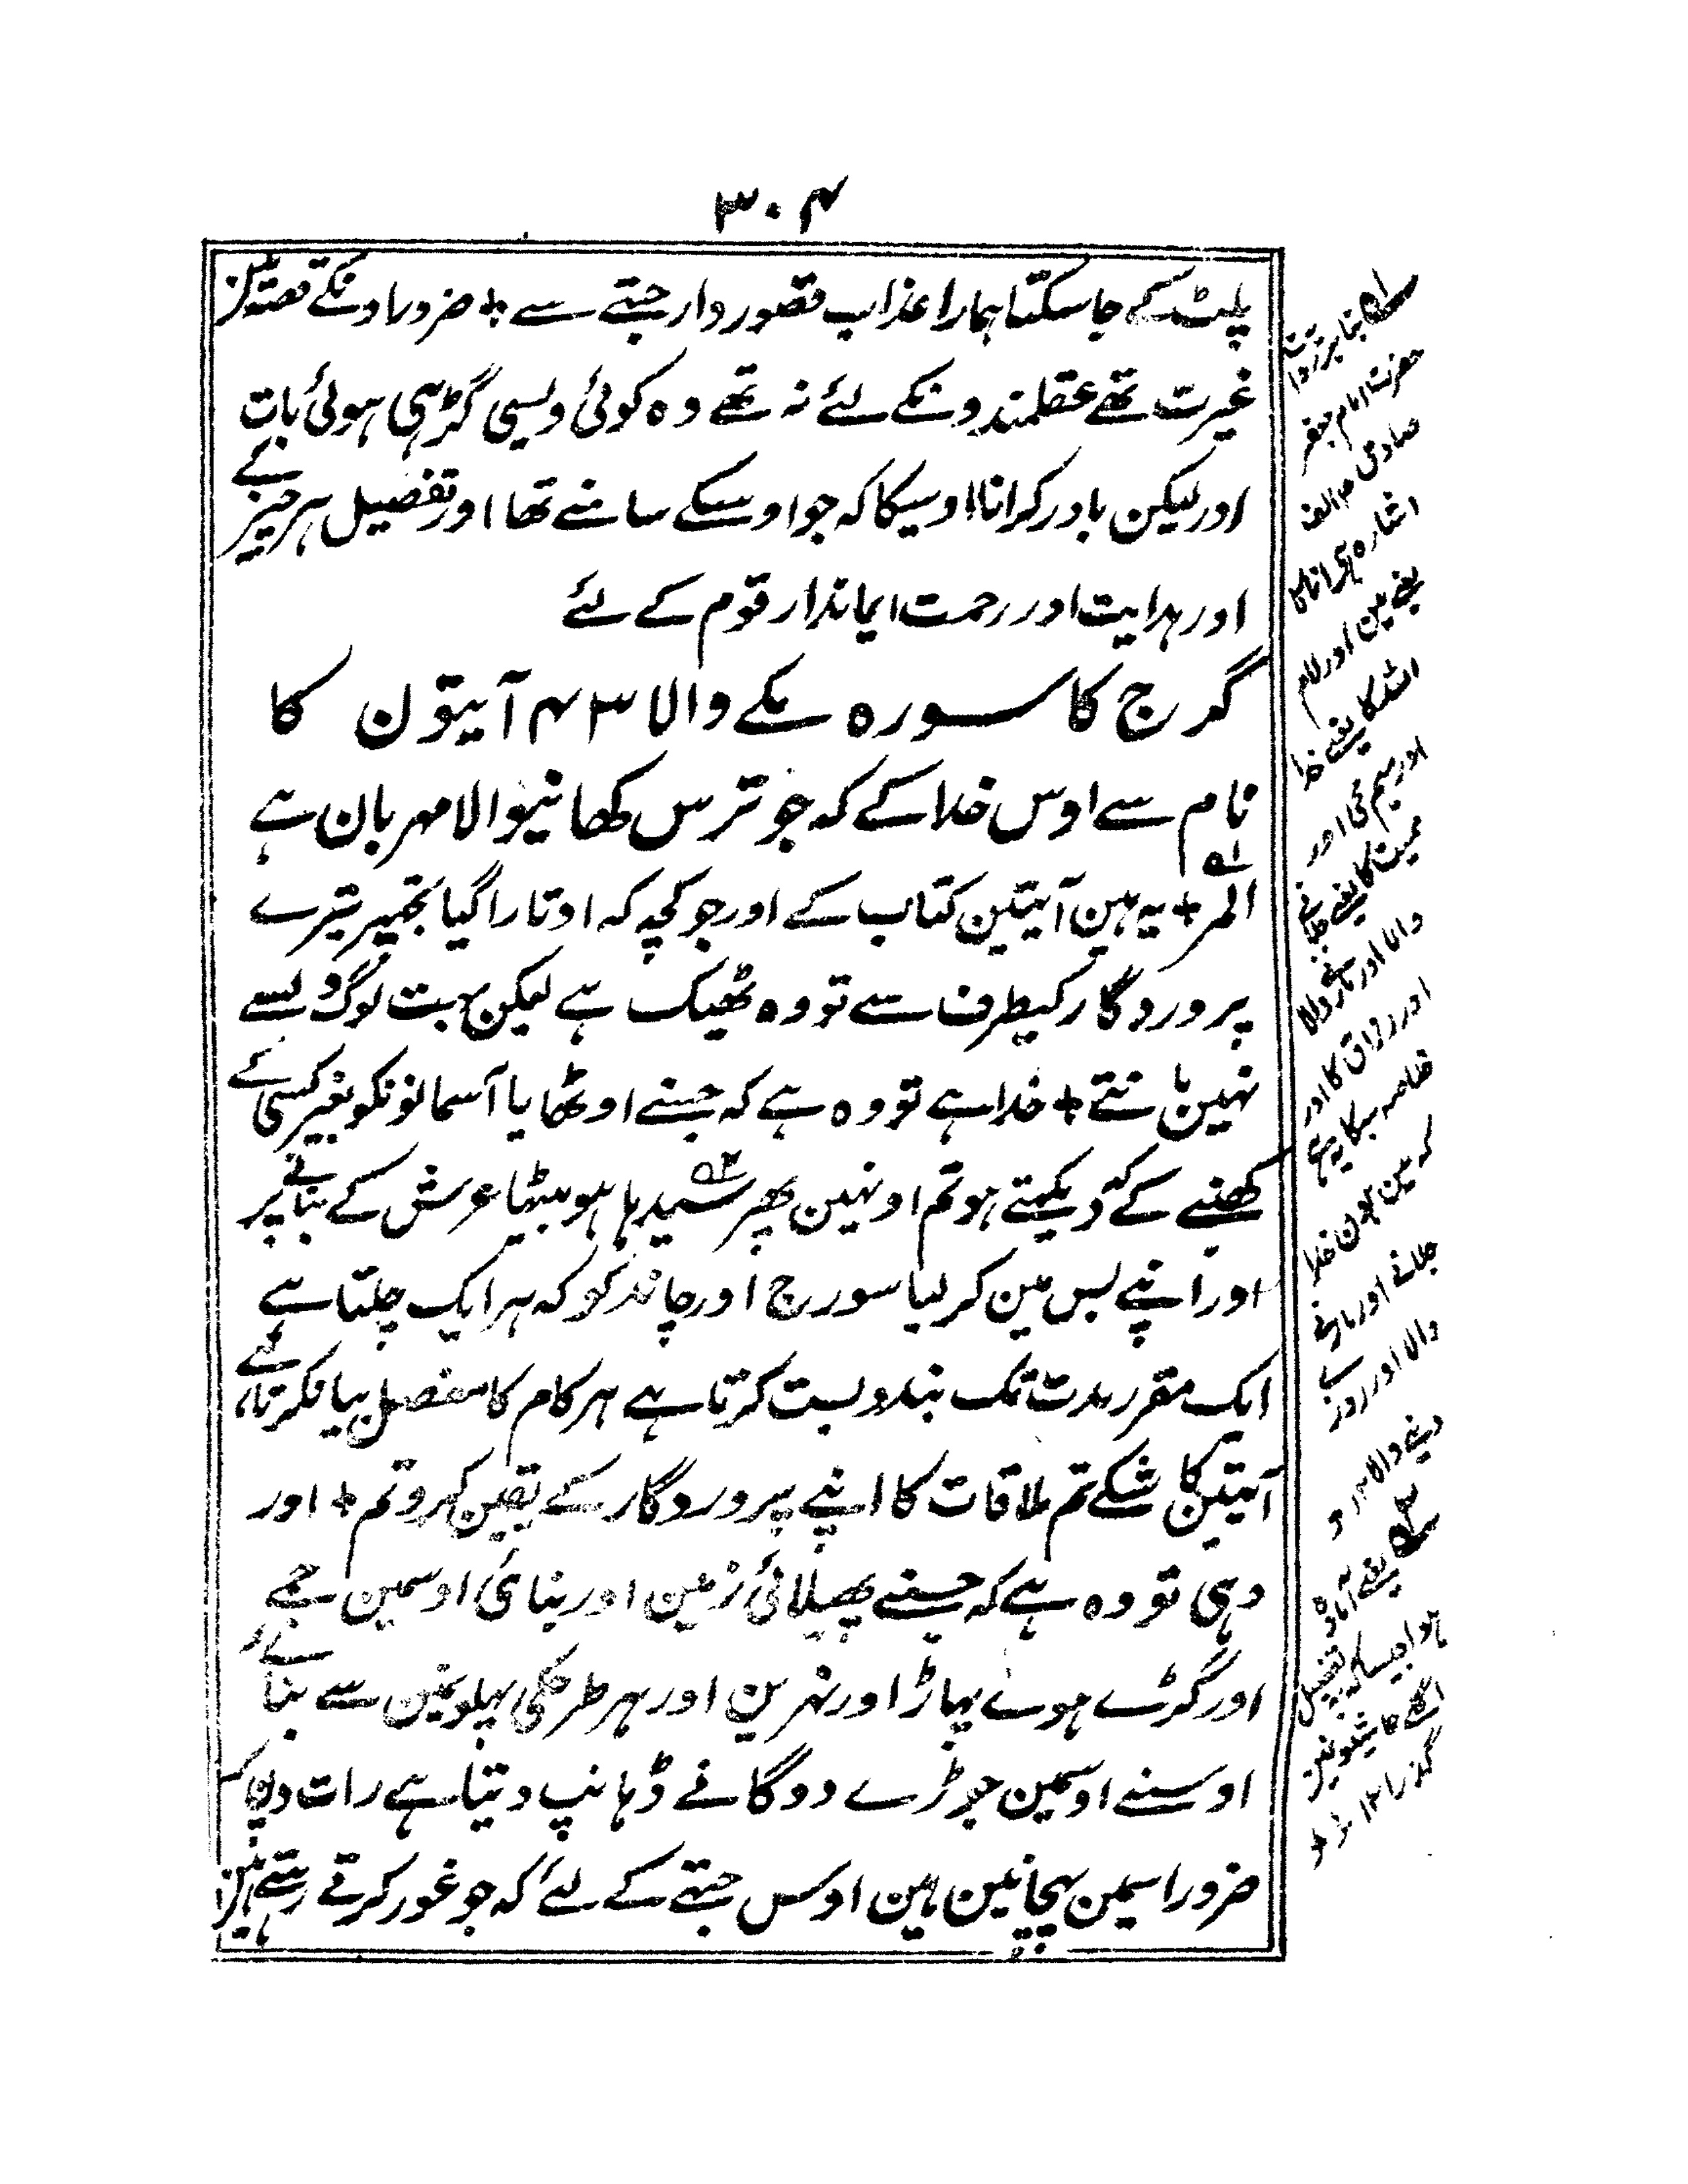 ۳۰۴
پلٹ کے جا سکتا ہمارا عذاب قصوروار جتھے سے + ضرور اونکے قصہ مین
غیرت تھے عقلمندونکے لئے نہ تھے وہ کوئی ویسی گڑہی ہوئی بات
اور لیکن باور کرانا اوسیکا کہ جو اوسکے سامنے تھا اور تفصیل ہر چیز کے
اور ہدایت اور رحمت ایماندار قوم کے لئے
گرج کا سورہ مکے والا ۴۳ آیتون کا
نام سے اوس خدا کے کہ جو ترس کھانیوالا مہربان ہے
المر + یہ ہین آیتین کتاب کے اور جو کچہ کہ اوتارا گیا تجھپر تیرے
پروردگار کیطرف سے تو وہ ٹھیک ہے لیکن بہت لوگ ویسے
نہین مانتے + خدا ہے تو وہ ہے کہ جسنے اوٹھایا آسمانونکو بغیر کسی ایسے
کھنبے کے کہ دیکہتے ہو تم اونہین پھر سیدہا ہو بیٹھا عرش کے بنانے پر
اور اپنے بس مین کر لیا سورج اور چاند کو کہ ہر ایک چلتا ہے
ایک مقرر مدت تک بندوبست کرتا ہے ہر کام کا مفصل بیان کرتا ہے
آیتین کا شکے تم ملاقات کا اپنے پروردگار کے یقین کرو تم + اور
وہی تو وہ ہے کہ جسنے پھیلائی زمین اور بنائی اوسمین جمے
اور گڑے ہوے پہاڑ اور نہرین اور ہر طرحکی پہلونمین سے بنائے
اوسنے اوسمین جوڑے دوگانے ڈہانپ دیتا ہے رات دن کو
ضرور اسمین پہچانین ہین اوس جتھے کے لئے کہ جو غور کرتے رہتے ہین
۱ بنا بر روایت
حضرت امام جعفر
صادق ع الف
اشارہ ہی انا کا
یعنے مین اور لام
اللہ کا یعنے خدا
اور میم محی اور
ممیت کا یعنے جلانے
والا اور مارنے والا
اور را رزاق کا اور
خلاصہ سبکا یہ ہے
کہ مین ہون خدا
جلانے اور مارنے
والا اور روزے
دینے والا
۲ یعنے آمادہ
ہوا جیسا کہ تفصیل
اگلے حاشیونمین
گذرا ۱۲